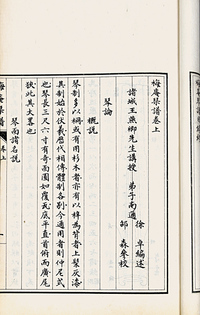 梅庵琴譜卷上
諸城王燕卿先生講授　弟子南通
徐　卓編述
邵　森參校
琴論
概說
琴制多以桐或有用杉木者亦有以梓為背者上髹灰漆
其制始於伏羲歷代相傳體制各別今通用者則仲尼式
也琴長三尺六寸有奇面圜如覆瓦底平直首俯而廣尾
狹此其大畧也
琴面諸名說
梅庵琴譜
卷上